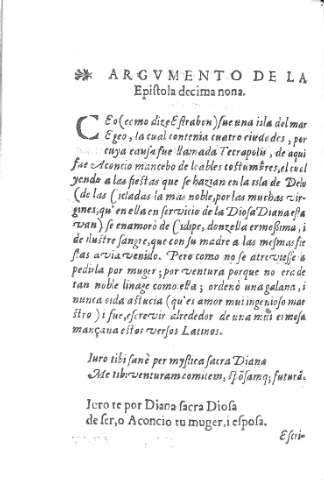 ❧ ARGVMENTO DE LA
Epistola decima nona.
CEo (como dize Estrabon) fue una isla del mar
Egeo, la cual contenia cuatro ciudades, por
cuya causa fue llamada Tetrapolis, de aqui
fue Aconcio mancebo de loables costumbres, el cual
yendo a las fiestas que se hazian en la isla de Delo
(de las Cicladas la mas noble, por las muchas vir-
gines, qu'en ella en servicio de la Diosa Diana esta
van) se enamorò de Cidipe, donzella ermosissima, i
de ilustre sangre, que con su madre a las mesmas fie
stas avia venido. Pero como no se atreviesse a
pedirla por muger; por ventura porque no era de
tan noble linage como ella; ordenò una galana, i
nunca vista astucia (qu'es amor mui ingenioso mae
stro) i fue, escrevir alrededor de una mui ermosa
mançana estos versos Latinos.
Iuro tibi sanè per mystica sacra Dianæ
Me tibi venturam comitem, spõsamq; futurã.
Iuro te por Diana sacra Diosa
de ser, o Aconcio tu muger, i esposa.
Escri-